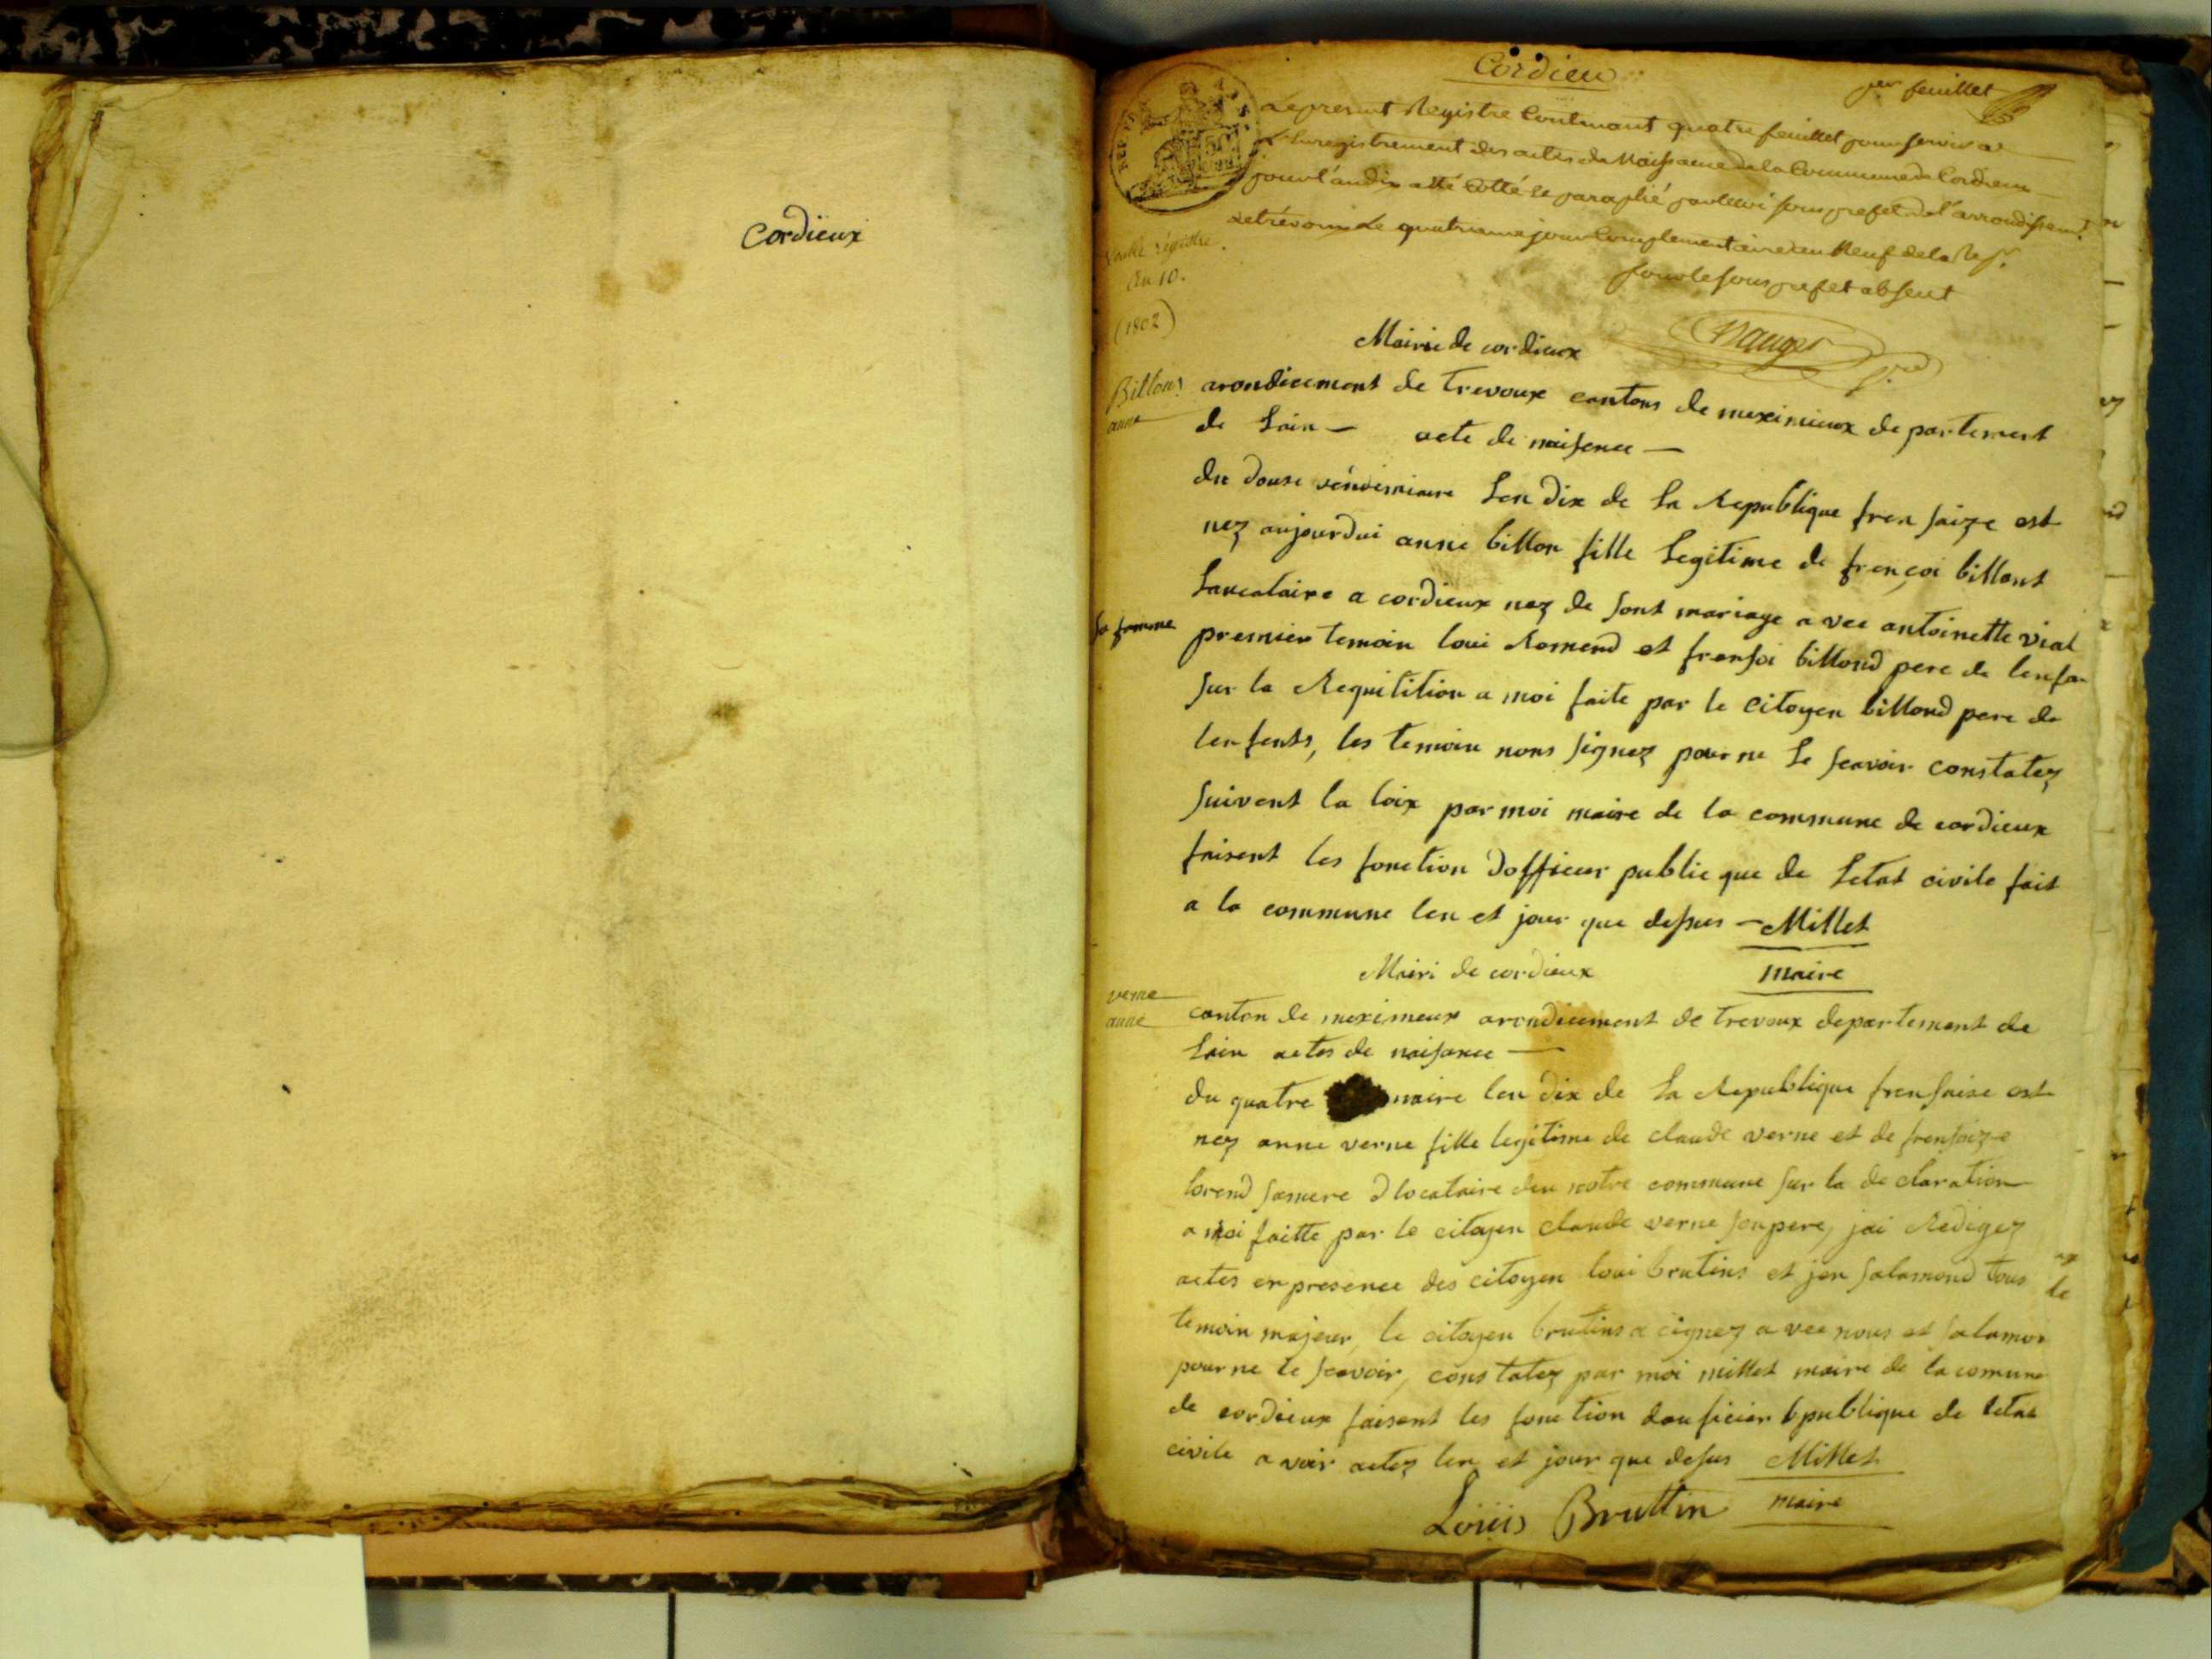 Cordieux
Cordieu
1er feuillet
Le present Registre Contenant quatre feuillet pour servir a
L'Enregistrement des actes de Naissance de la Commune de Cordieu
pour l'an dix a été Cotté et paraphé par Nous sous prefet de l'arrondissem.t
de trévoux Le quatrieme jour Complementaire an Neuf de la Rep.
pour le sous prefet absent
registre
An 10.
(1802)
Mairie de cordieux
Billon
anne
arondicement de trevoux cantons de meximieux departement
de Lain — acte de naisence —
du douse véndemiaire Len dix de La Republique fren saize est
nez aujourdui anne billon fille Legitime de françoi billont
Laucataire a cordieux nez de sont mariage a vec antoinette vial
sa femme
premier temoin loui Romend et frensoi billond pere de lenfan
sur la Requitition a moi faite par le citoyen billond pere de
lenfents, les temoin nons signez pour ne Le scavoir constatez
suivent la loix par moi maire de la commune de cordieux
faisent les fonction dofficeur public que de Letat civile fait
a la commune len et jour que dessus — Millet
maire
Mairi de cordieux
verne
anne
canton de meximeux arondicement de trevoux departement de
Lain actes de naisance —
du quatre naire len dix de La Republique frensaise est
nez anne verne fille legitime de claude verne et de frensoize
lorend samere d locataire den notre commune sur la de claration
a moi faitte par le citoyen claude verne son pere, jai Redigez
actes en presence des citoyen loui brutins et jen salamond tous
le
temoin majeur, le citoyen brutins a cignez a vec nous et salamon
pour ne le scavoir, constatez par moi millet maire de la comune
de cordieux faisent les fonction douficier bpublique de letat
civile a voir actez len et jour que desus Millet
maire
Louis Bruttin